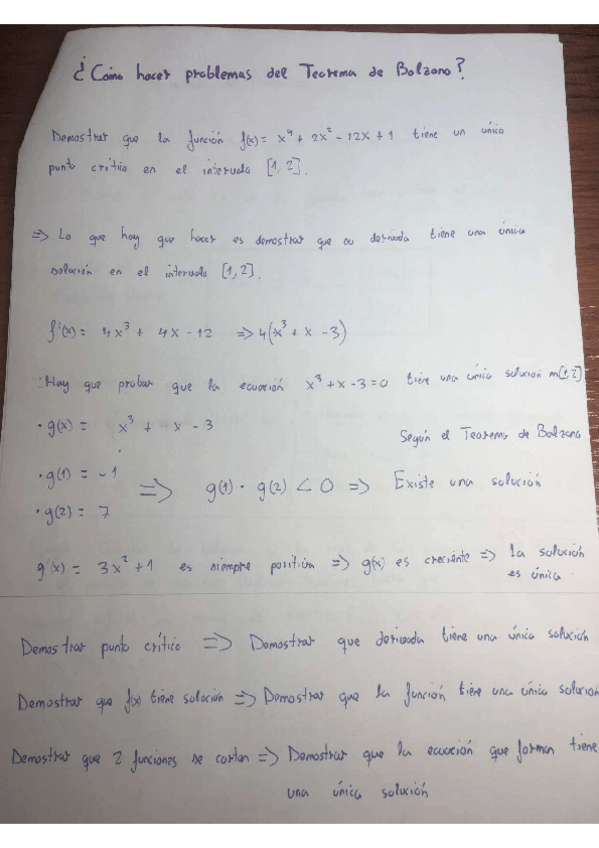 ¿Cómo hacer problemas del Teorema de Bolzano?
Demostrar que la función f(x) = x⁴ + 2x² - 12x + 1 tiene un único
punto crítico en el intervalo [1, 2].
=> Lo que hay que hacer es demostrar que su derivada tiene una única
solución en el intervalo [1, 2].
f'(x) = 4x³ + 4x - 12 => 4(x³ + x - 3)
: Hay que probar que la ecuación x³ + x - 3 = 0 tiene una única solución en [1, 2]
· g(x) = x³ + x - 3
Según el Teorema de Bolzano
· g(1) = -1
=> g(1) · g(2) < 0 => Existe una solución
· g(2) = 7
g'(x) = 3x² + 1 es siempre positiva => g(x) es creciente => la solución
es única
Demostrar punto crítico => Demostrar que derivada tiene una única solución
Demostrar que f(x) tiene solución => Demostrar que la función tiene una única solución
Demostrar que 2 funciones se cortan => Demostrar que la ecuación que forman tiene
una única solución